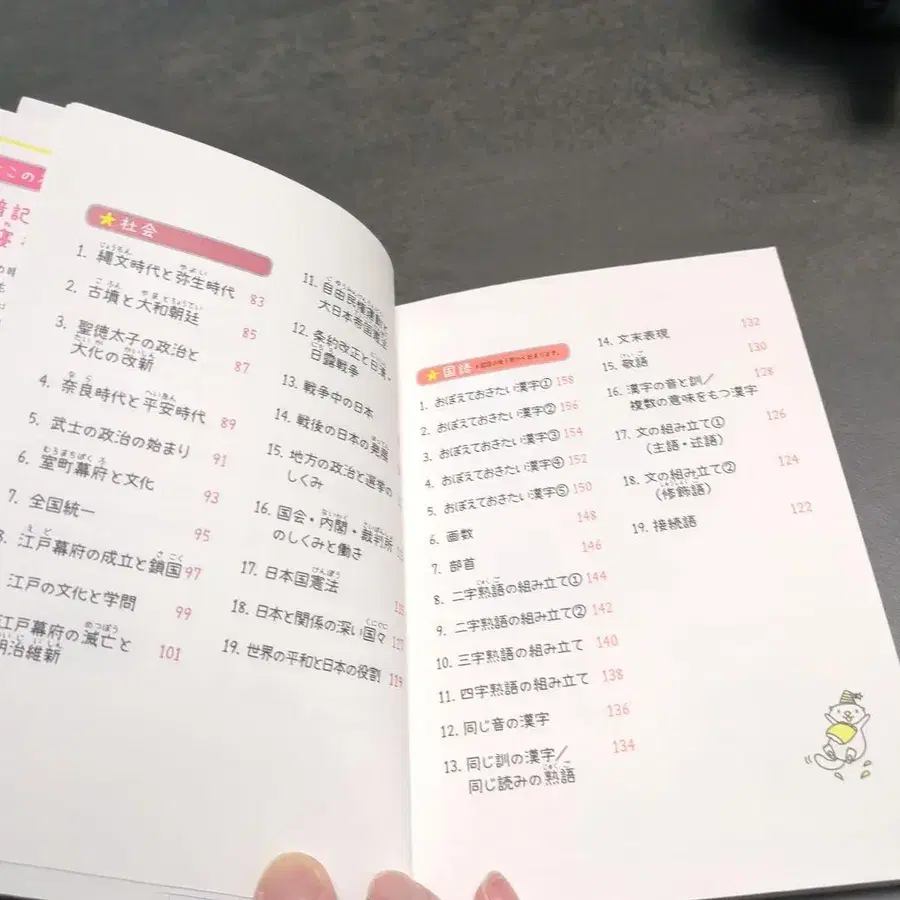 ★社会
1. 縄文時代と弥生時代 83
2. 古墳と大和朝廷 85
3. 聖徳太子の政治と
大化の改新 87
4. 奈良時代と平安時代 89
5. 武士の政治の始まり 91
6. 室町幕府と文化 93
7. 全国統一 95
8. 江戸幕府の成立と鎖国 97
江戸の文化と学問 99
江戸幕府の滅亡と
明治維新 101
11. 自由民権運動と
大日本帝国憲法
12. 条約改正と日清・
日露戦争
13. 戦争中の日本
14. 戦後の日本の発展
15. 地方の政治と選挙の
しくみ
16. 国会・内閣・裁判所
のしくみと働き
17. 日本国憲法
18. 日本と関係の深い国々
19. 世界の平和と日本の役割 119
★国語
1. おぼえておきたい漢字① 158
2. おぼえておきたい漢字② 156
3. おぼえておきたい漢字③ 154
4. おぼえておきたい漢字④ 152
5. おぼえておきたい漢字⑤ 150
6. 画数 148
7. 部首 146
8. 二字熟語の組み立て① 144
9. 二字熟語の組み立て② 142
10. 三字熟語の組み立て 140
11. 四字熟語の組み立て 138
12. 同じ音の漢字 136
13. 同じ訓の漢字/
同じ読みの熟語 134
14. 文末表現 132
15. 敬語 130
16. 漢字の音と訓/
複数の意味をもつ漢字 128
17. 文の組み立て①
(主語・述語) 126
18. 文の組み立て②
(修飾語) 124
19. 接続語 122